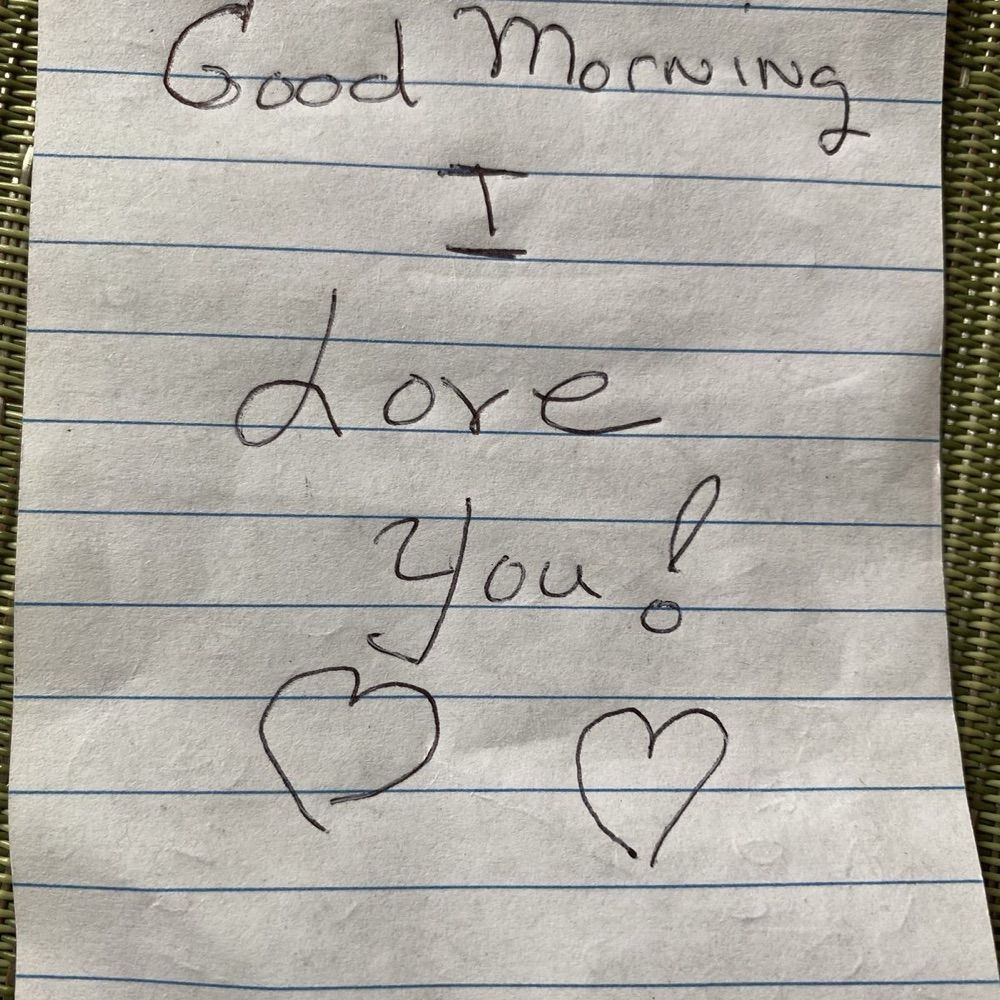 Good Morning
I
Love
You!